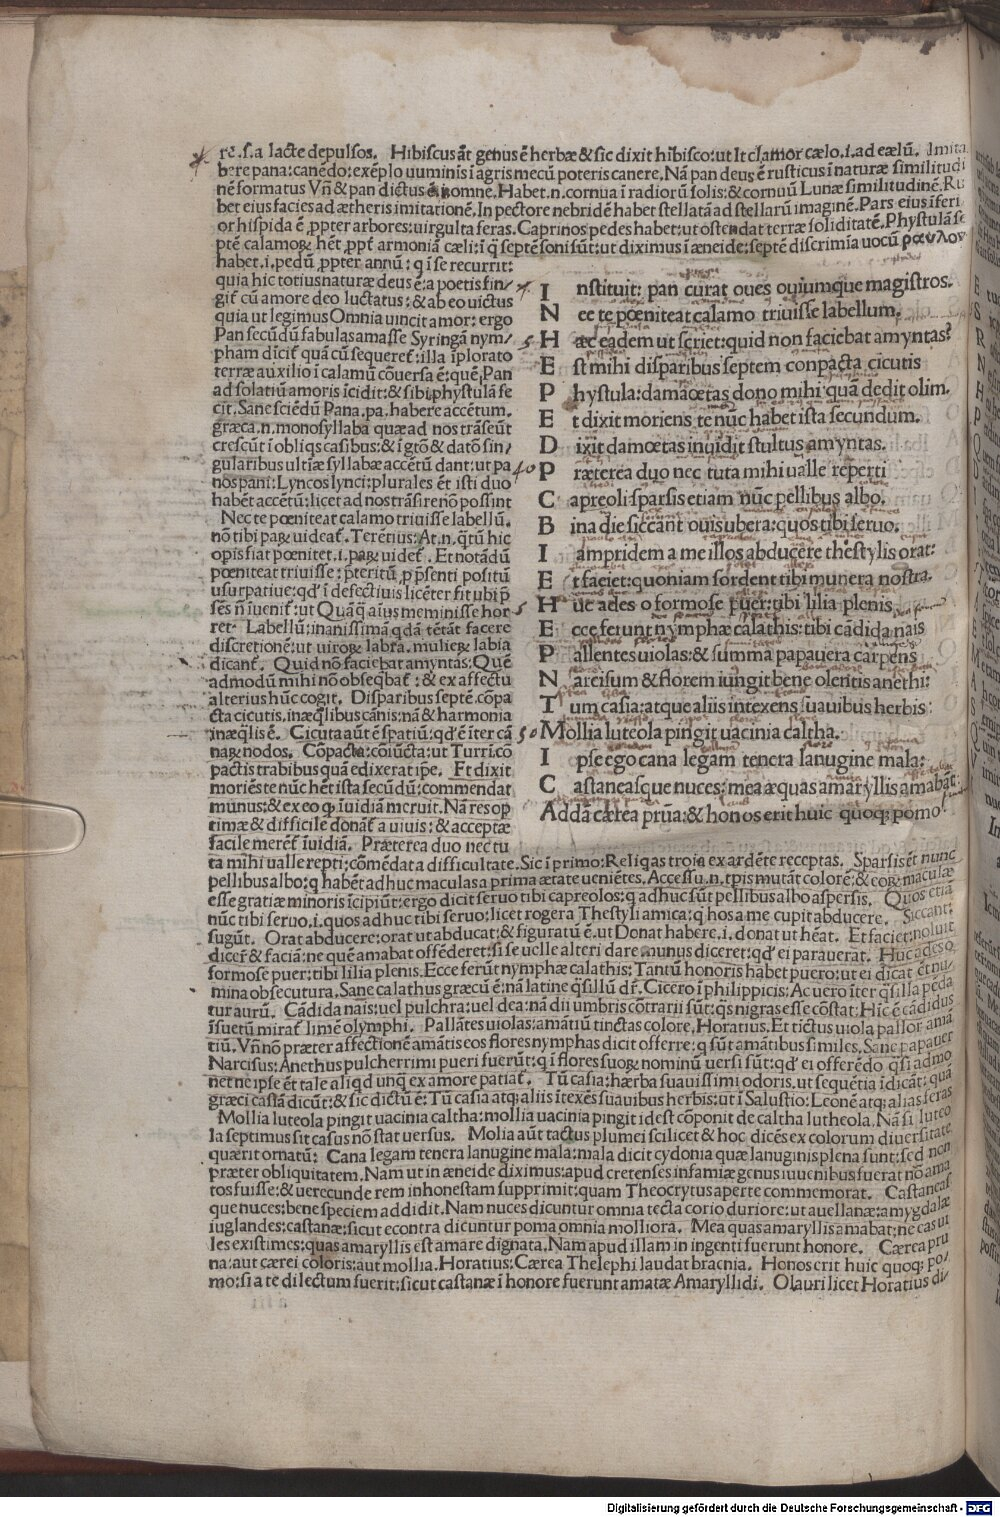 re .s. a lacte depulsos. Hibiscus āt genus ē herbæ & sic dixit hibisco: ut It clamor cælo .i. ad cælū. Imita
bere pana: canēdo: exēplo numinis ī agris mecū poteris canere. Nā pan deus ē rusticus ī naturæ similitudi
nē formatus Vñ & pan dictus ē omne. Habet .n. cornua ī radiorū solis: & cornuū Lunæ similitudinē. Ru
bet eius facies ad ætheris imitationē. In pectore nebridē habet stellatā ad stellarū imaginē. Pars eius īferi
or hispida ē ꝓpter arbores: uirgulta feras. Caprinos pedes habet: ut ostendat terræ soliditatē. Phystulā se
ptē calamoꝝ hēt ꝓpt̄ armoniā cæli: ī q̄ septē soni sūt: ut diximus ī æneide: septē discrimīa uocū
habet .i. pedū ꝓpter annū: q ī se recurrit:
quia hic totius naturæ deus ē: a poetis fin/
git̄ cū amore deo luctatus: & ab eo uictus
quia ut legimus Omnia uincit amor: ergo
Pan secūdū fabulas amasse Syringā nym/
pham dicit̄ quā cū sequeret̄: illa īplorato
terræ auxilio ī calamū cōuersa ē: quē Pan
ad solatiū amoris īcidit: & sibi phystulā fe
cit. Sane sciēdū Pana .pa. habere accētum.
græca .n. monosyllaba quæ ad nos trāseūt
crescūt ī obliq̄s casibus: & ī gtō & datō sin/
gularibus ultiæ syllabæ accētū dant: ut pa
nos pani: Lyncos lynci: plurales ēt isti duo
habēt accētū: licet ad nos trāsire nō possint
Nec te pœniteat calamo triuisse labellū.
nō tibi paꝝ uideat̄. Teretius: At .n. q̄tū hic
opis fiat pœnitet .i. paꝝ uidet̄. Et notādū
pœniteat triuisse: p̄teritū ꝓ p̄senti positū
usurpatiue: qd' ī defectiuis licēter fit ubi p̄
sēs nō īuenit̄: ut Quāq̄ aīus meminisse hor
ret. Labellū: inanissimā qdā tētāt facere
discretionē: ut uiroꝝ labra. mulieꝝ labia
dicant̄. Quid nō faciebat amyntas: Quē
admodū mihi nō obseqbat̄: & ex affectu
alterius hūc cogit. Disparibus septē cōpa
cta cicutis. inæq̄libus cānis: nā & harmonia
inæq̄lis ē. Cicuta aūt ē spatiū: qd' ē iter cā
naꝝ nodos. Cōpacta: coiūcta: ut Turri: cō
pactis trabibus quā edixerat ipse. Et dixit
moriēs te nūc hēt ista secūdū: commendat
munus: & ex eo ꝙ īuidiā meruit. Nā res op
timæ & difficile donāt̄ a uiuis: & acceptæ
facile merēt̄ īuidiā. Præterea duo nec tu
Instituit: pan curat oues ouiumque magistros.
Nec te pœniteat calamo triuisse labellum.
Hæc eadem ut sciret: quid non faciebat amyntas?
Est mihi disparibus septem conpacta cicutis
Phystula: damœtas dono mihi quā dedit olim.
Et dixit moriens te nūc habet ista secundum.
Dixit damœtas inuidit stultus amyntas.
40 Præterea duo nec tuta mihi ualle reperti
Capreoli sparsis etiam nūc pellibus albo.
Bina die siccant ouis ubera: quos tibi seruo.
Iampridem a me illos abducere thestylis orat:
Et faciet: quoniam sordent tibi munera nostra.
Huc ades o formose puer: tibi lilia plenis
Ecce ferunt nymphæ calathis: tibi cādida nais
Pallentes uiolas: & summa papauera carpens
Narcisum & florem iungit bene olentis anethi:
Tum casia: atque aliis intexens suauibus herbis:
50 Mollia luteola pingit uacinia caltha.
Ipse ego cana legam tenera lanugine mala:
Castaneasque nuces: mea æquas amaryllis amabāt:
Addā cærea prūa: & honos erit huic quoq; pomo
ta mihi ualle repti: cōmēdat a difficultate. Sic ī primo: Reliqas troia ex ardēte receptas. Sparsis ēt nunc
pellibus albo: q habēt adhuc maculas a prima ætate ueniētes. Accessu .n. tpis mutāt colorē: & eoꝝ maculæ
esse gratiæ minoris īcipiūt: ergo dicit seruo tibi capreolos: q adhuc sūt pellibus albo aspersis. Quos etiā
nūc tibi seruo .i. quos adhuc tibi seruo: licet rogera Thestyli amica: q hos a me cupit abducere. Siccant:
sugūt. Orat abducere: orat ut abducat: & figuratū ē. ut Donat habere .i. donat ut hēat. Et faciet: noluit
dicer̄ & faciā: ne quē amabat offēderet: si se uelle alteri dare munus diceret: qd' ei parauerat. Huc ades o
formose puer: tibi lilia plenis. Ecce ferūt nymphæ calathis: Tantū honoris habet puero: ut ei dicat ēt nu/
mina obsecutura. Sane calathus græcū ē: nā latine q̄sillū dr̄. Cicero ī philippicis: Ac uero īter q̄silla pēda
tur aurū. Cādida nais: uel pulchra: uel dea: nā dii umbris cōtrarii sūt: q̄s nigras esse cōstat: Hic ē cādidus
īsuetū mirat̄ limē olymphi. Pallētes uiolas: amātiū tinctas colore. Horatius. Et tictus uiola pallor amā
tiū. Vñ nō præter affectionē amātis eos flores nymphas dicit offerre: q sūt amātibus similes. Sane papauer
Narcisus: Anethus pulcherrimi pueri fuerūt: q ī flores suoꝝ nominū uersi sūt: qd' ei offerēdo q̄si admo
net ne ipse ēt tale aliqd unq̄ ex amore patiat̄. Tū casia: hærba suauissimi odoris. ut sequētia īdicāt: quā
græci castā dicūt: & sic dictū ē: Tū casia atq; aliis ītexēs suauibus herbis: ut ī Salustio: Leonē atq; alias feras
Mollia luteola pingit uacinia caltha: mollia uacinia pingit id est cōponit de caltha lutheola. Nā si luteo
la septimus sit casus nō stat uersus. Molia aūt tactus plumei scilicet & hoc dicēs ex colorum diuersitate
quærit ornatū: Cana legam tenera lanugine mala: mala dicit cydonia quæ lanuginis plena sunt: sed non
præter obliquitatem. Nam ut in æneide diximus: apud cretenses infamiæ genus iuuenibus fuerat nō ama
tos fuisse: & uerecunde rem inhonestam supprimit: quam Theocrytus aperte commemorat. Castaneas
que nuces: bene speciem addidit. Nam nuces dicuntur omnia tecta corio duriore: ut auellanæ: amygdalæ
iuglandes: castanæ: sicut econtra dicuntur poma omnia molliora. Mea quas amaryllis amabat: ne cas ui
les existimes: quas amaryllis est amare dignata. Nam apud illam in ingenti fuerunt honore. Cærea pru
na: aut cærei coloris: aut mollia. Horatius: Cærea Thelephi laudat bracnia. Honos erit huic quoq; po/
mo: si a te dilectum fuerit: sicut castanæ ī honore fuerunt amatæ Amaryllidi. O lauri licet Horatius di/
Digitalisierung gefördert durch die Deutsche Forschungsgemeinschaft - DFG